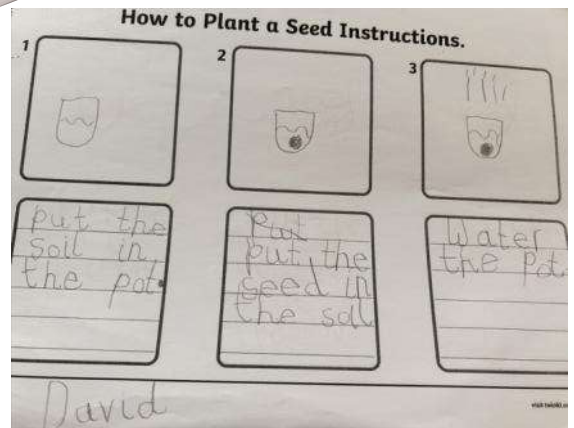 How to Plant a Seed Instructions.
1
2
3
put the
soil in
the pot.
Put
put the
seed in
the soil
Water
the Pot.
David